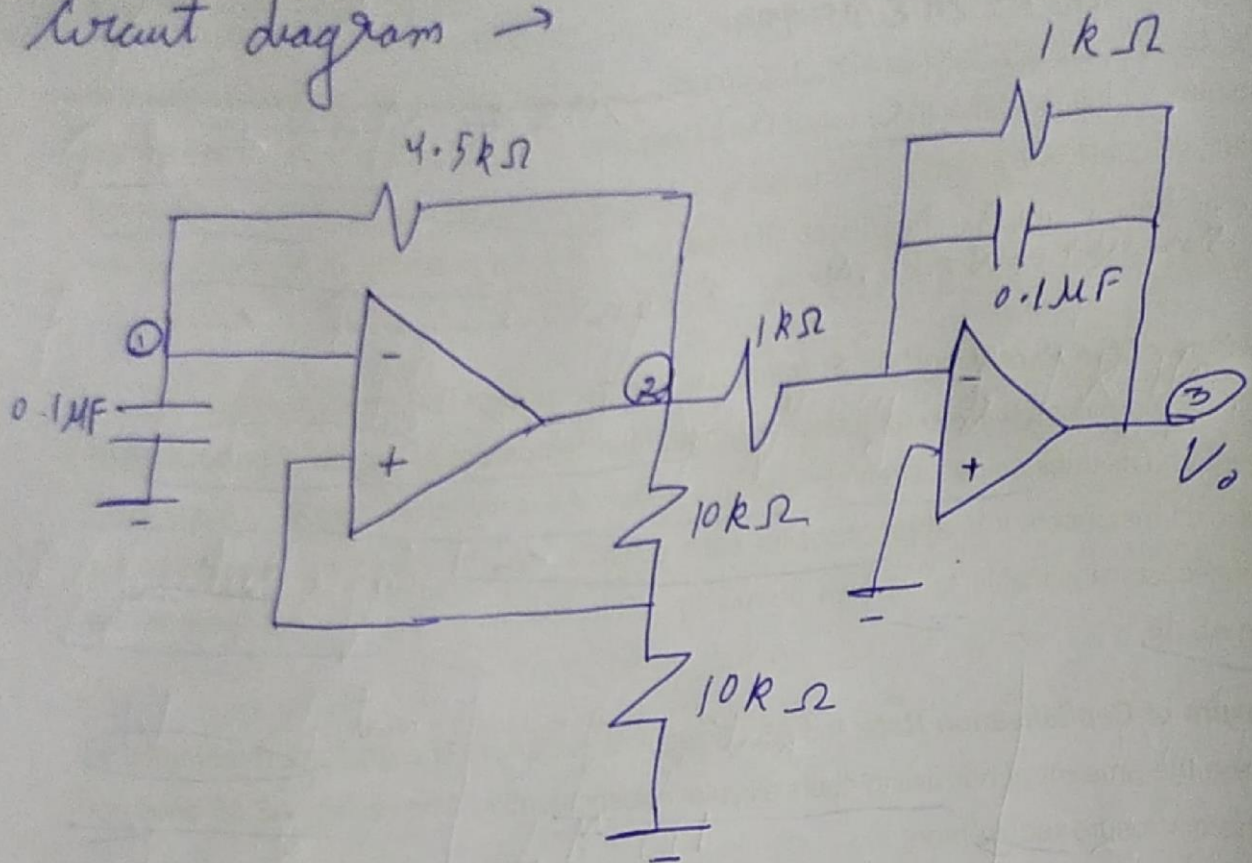 Circuit diagram →
1 k Ω
4.5kΩ
0.1µF
1kΩ
①
-
②
-
③
0.1µF
+
+
V₀
10kΩ
10kΩ